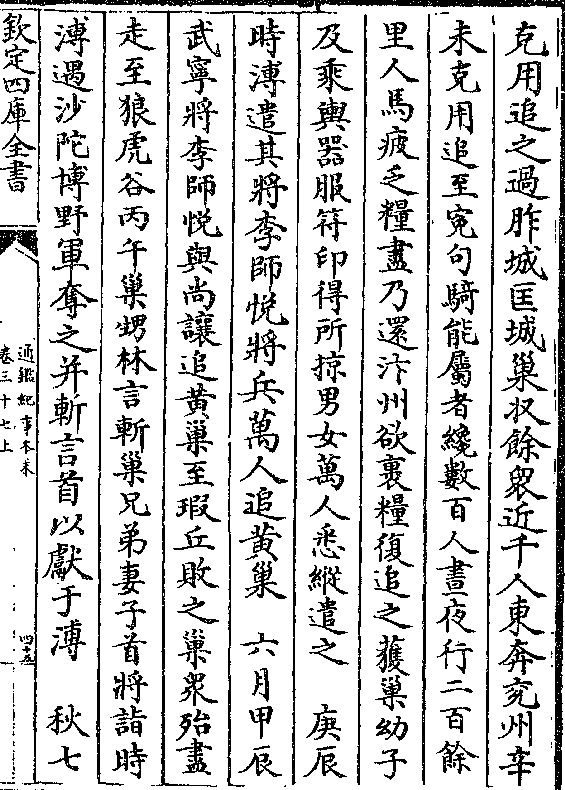 克用追之過胙城匡城巢収餘衆近千人東奔兖州辛
未克用追至寃句騎能屬者纔數百人晝夜行二百餘
里人馬疲乏糧盡乃還汴州欲裹糧復追之獲巢幼子
及乘輿器服符印得所掠男女萬人悉縱遣之　庚辰
時溥遣其將李師悦將兵萬人追黄巢　六月甲辰
武寧將李師悦與尚讓追黄巢至瑕丘敗之巢衆殆盡
走至狼虎谷丙午巢甥林言斬巢兄弟妻子首將詣時
溥遇沙陀博野軍奪之并斬言首以獻于溥　秋七
欽定四庫全書
通鑑紀事本末
卷三十七上
四十五